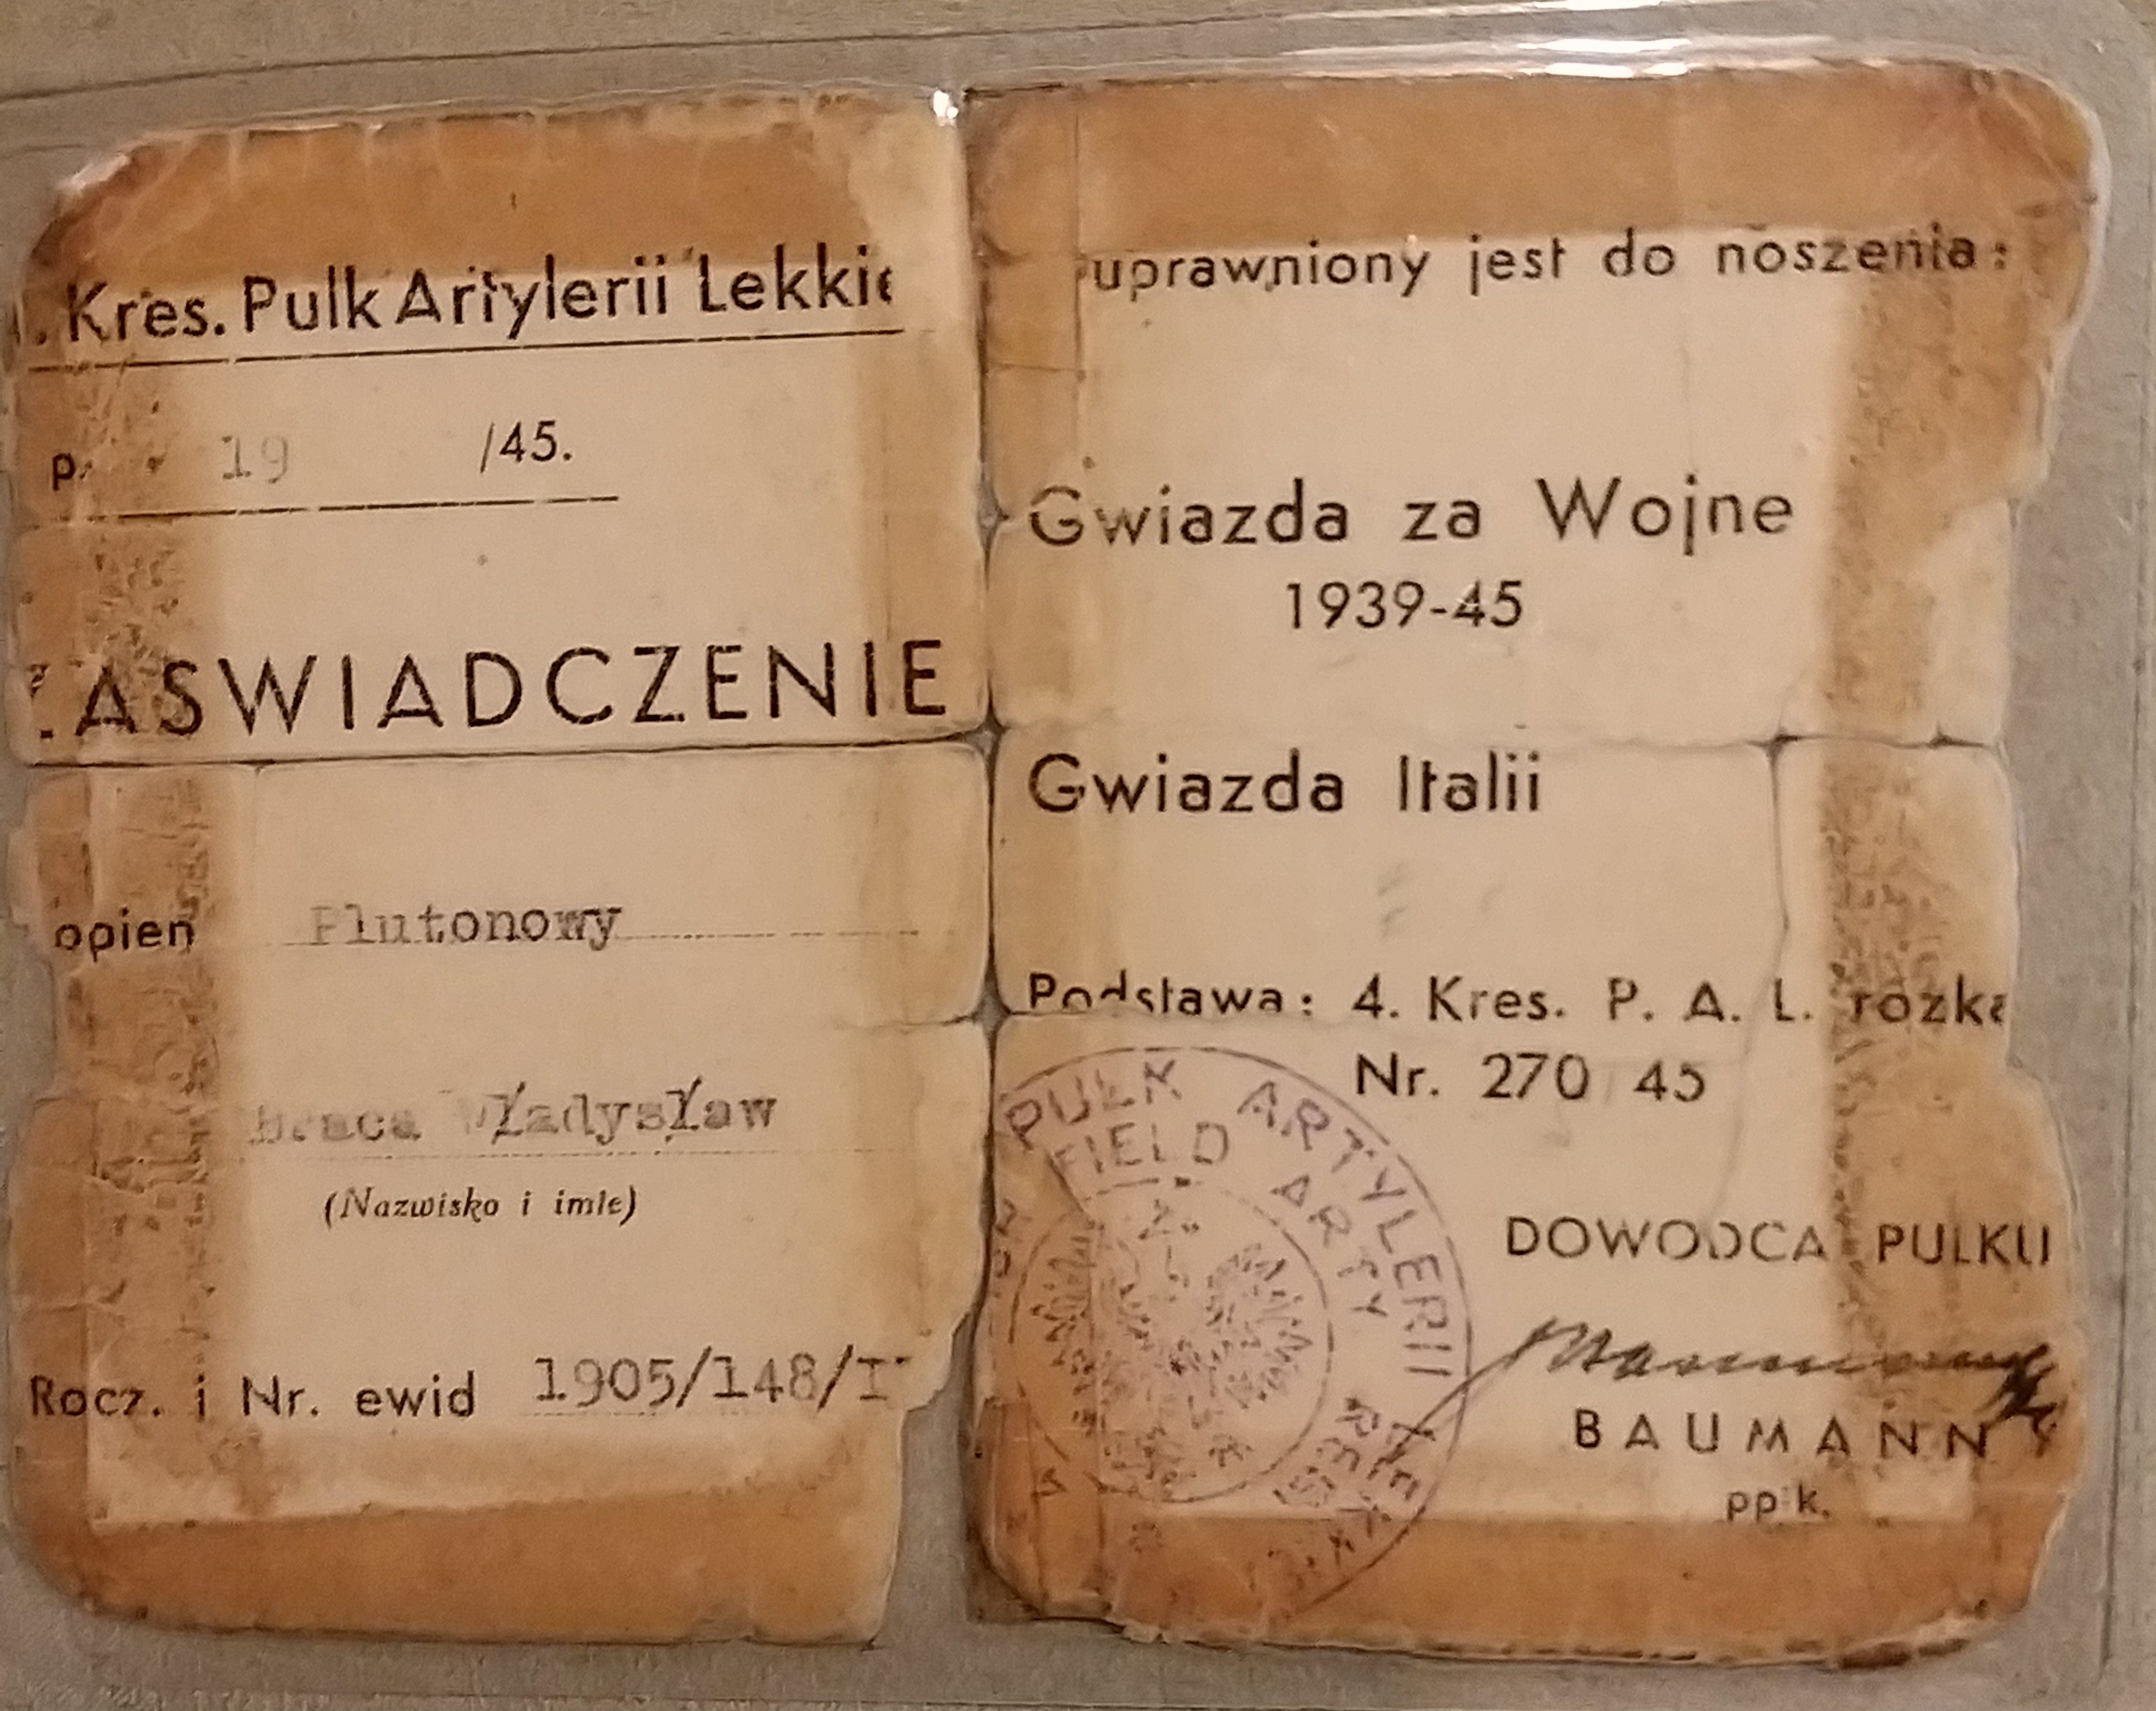 . Kres. Pulk Artylerii Lekkie
19 /45.
ZASWIADCZENIE
opien Plutonowy
Władysław
(Nazwisko i imie)
Rocz. i Nr. ewid 1905/148/I
uprawniony jest do noszenia:
Gwiazda za Wojne
1939-45
Gwiazda Italii
Podstawa: 4. Kres. P. A. L. rozka
Nr. 270 45
PUŁK ARTYLERII
FIELD ARTY
DOWODCA PULKU
BAUMANN
ppłk.